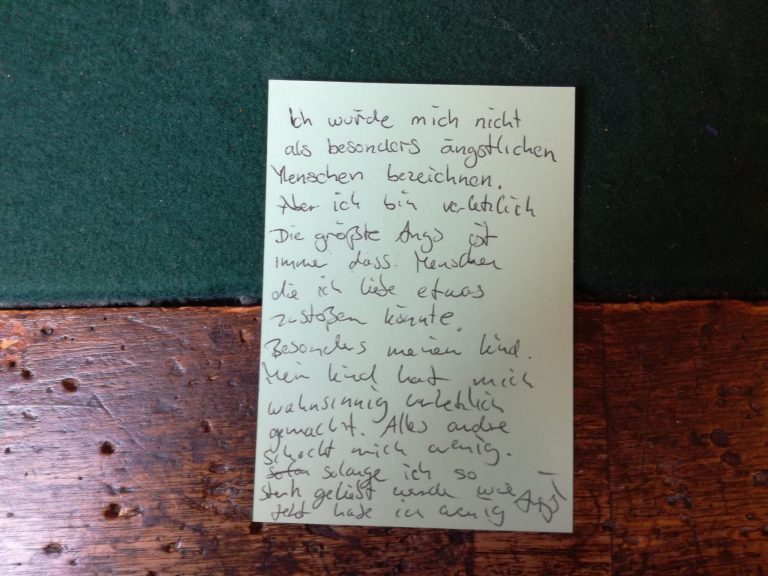 Ich würde mich nicht
als besonders ängstlichen
Menschen bezeichnen.
Aber ich bin verletzlich
Die größte Angs ist
immer dass Menschen
die ich liebe etwas
zustoßen könnte.
Besonders meinen Kind.
Mein Kind hat mich
wahnsinnig verletzlich
gemacht. Alles andre
schockt mich wenig.
solange ich so
stark geliebt werde wie
jetzt habe ich wenig Angst